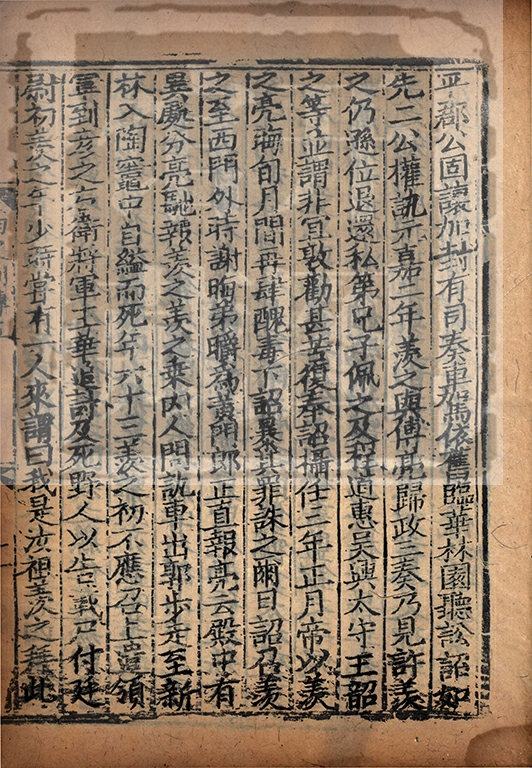 平郡公固讓加封有司奏車駕依舊臨華林園聽訟詔如
先二公權訊元嘉二年羨之與傅亮歸政三奏乃見許羨
之仍遜位退還私第兄子佩之及程道惠吳興太守王韶
之等並謂非宜敦勸甚苦復奉詔攝任三年正月帝以羨
之亮晦旬月間再肆醜毒下詔暴其罪誅之爾日詔召羨
之至西門外時謝晦弟㬭為黃門郎正直報亮云殿中有
異處分亮馳報羨之羨之乗內人問訊車出郭步走至新
林入陶竈中自縊而死年六十三羨之初不應召上遣領
軍到彥之右衛將軍王華追討及死野人以告載尸付廷
尉初羨之年少時嘗有一人來謂曰我是汝祖羨之拜此